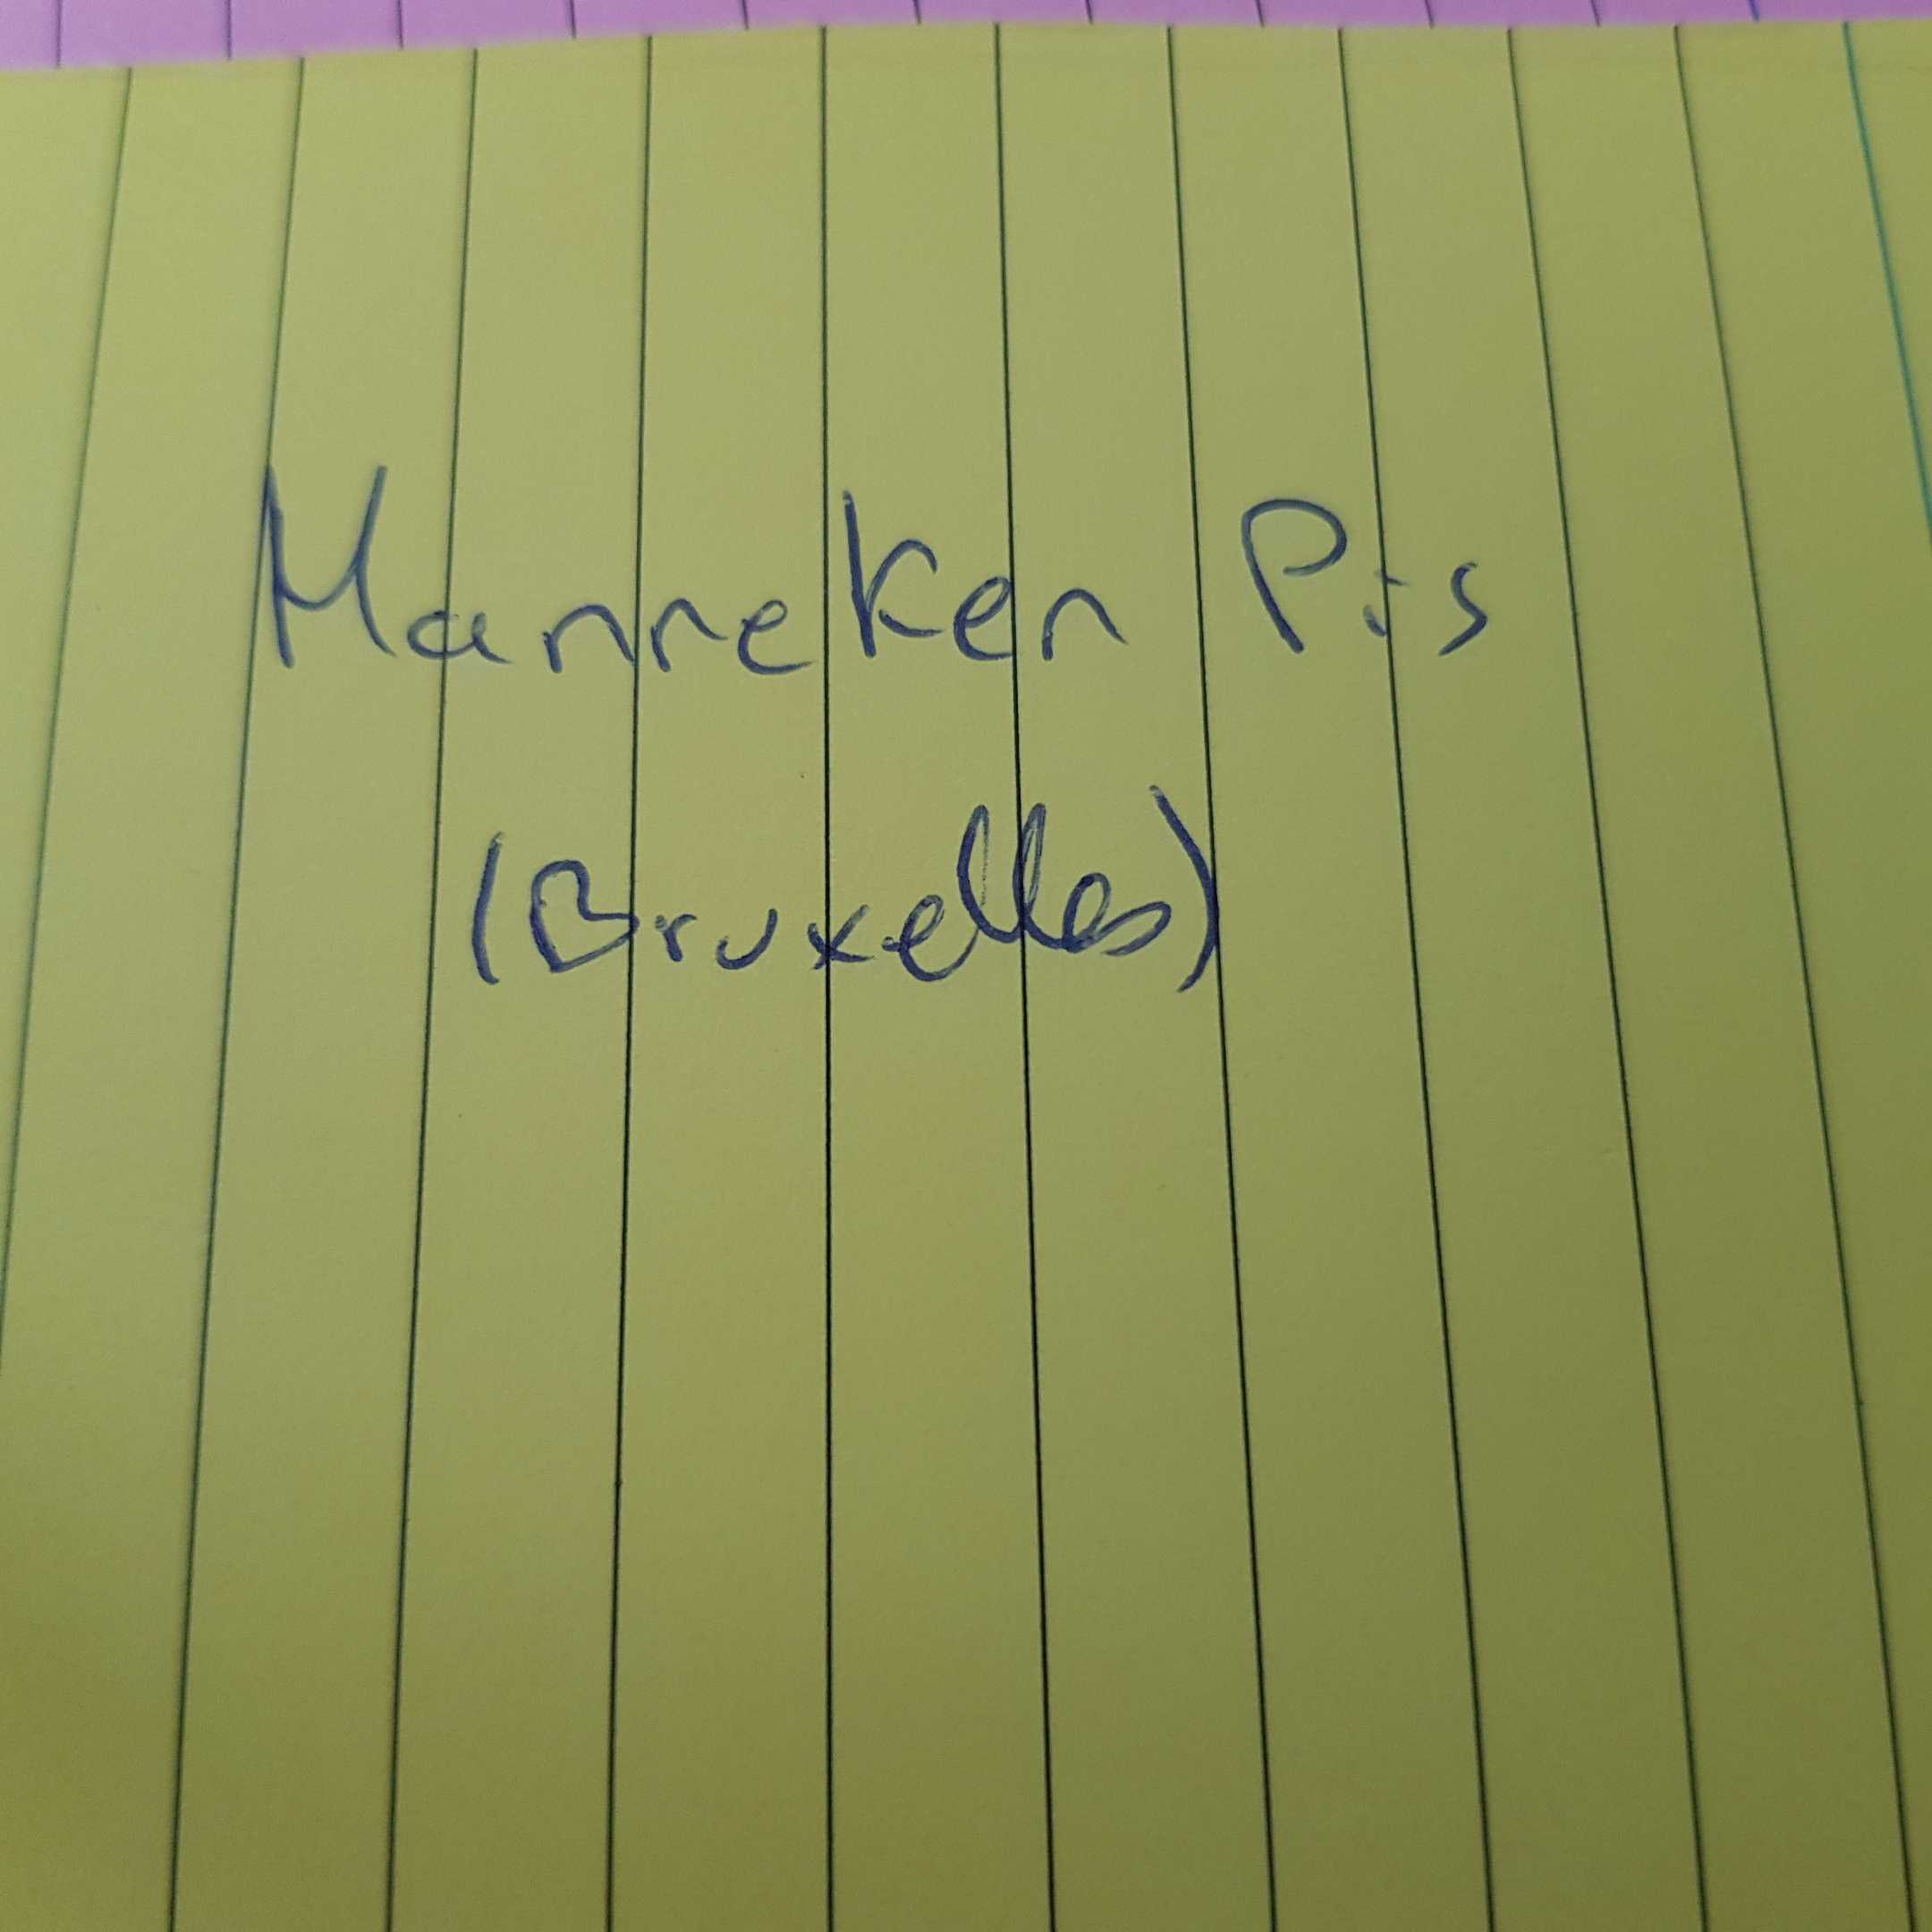 Manneken Pis
(Bruxelles)